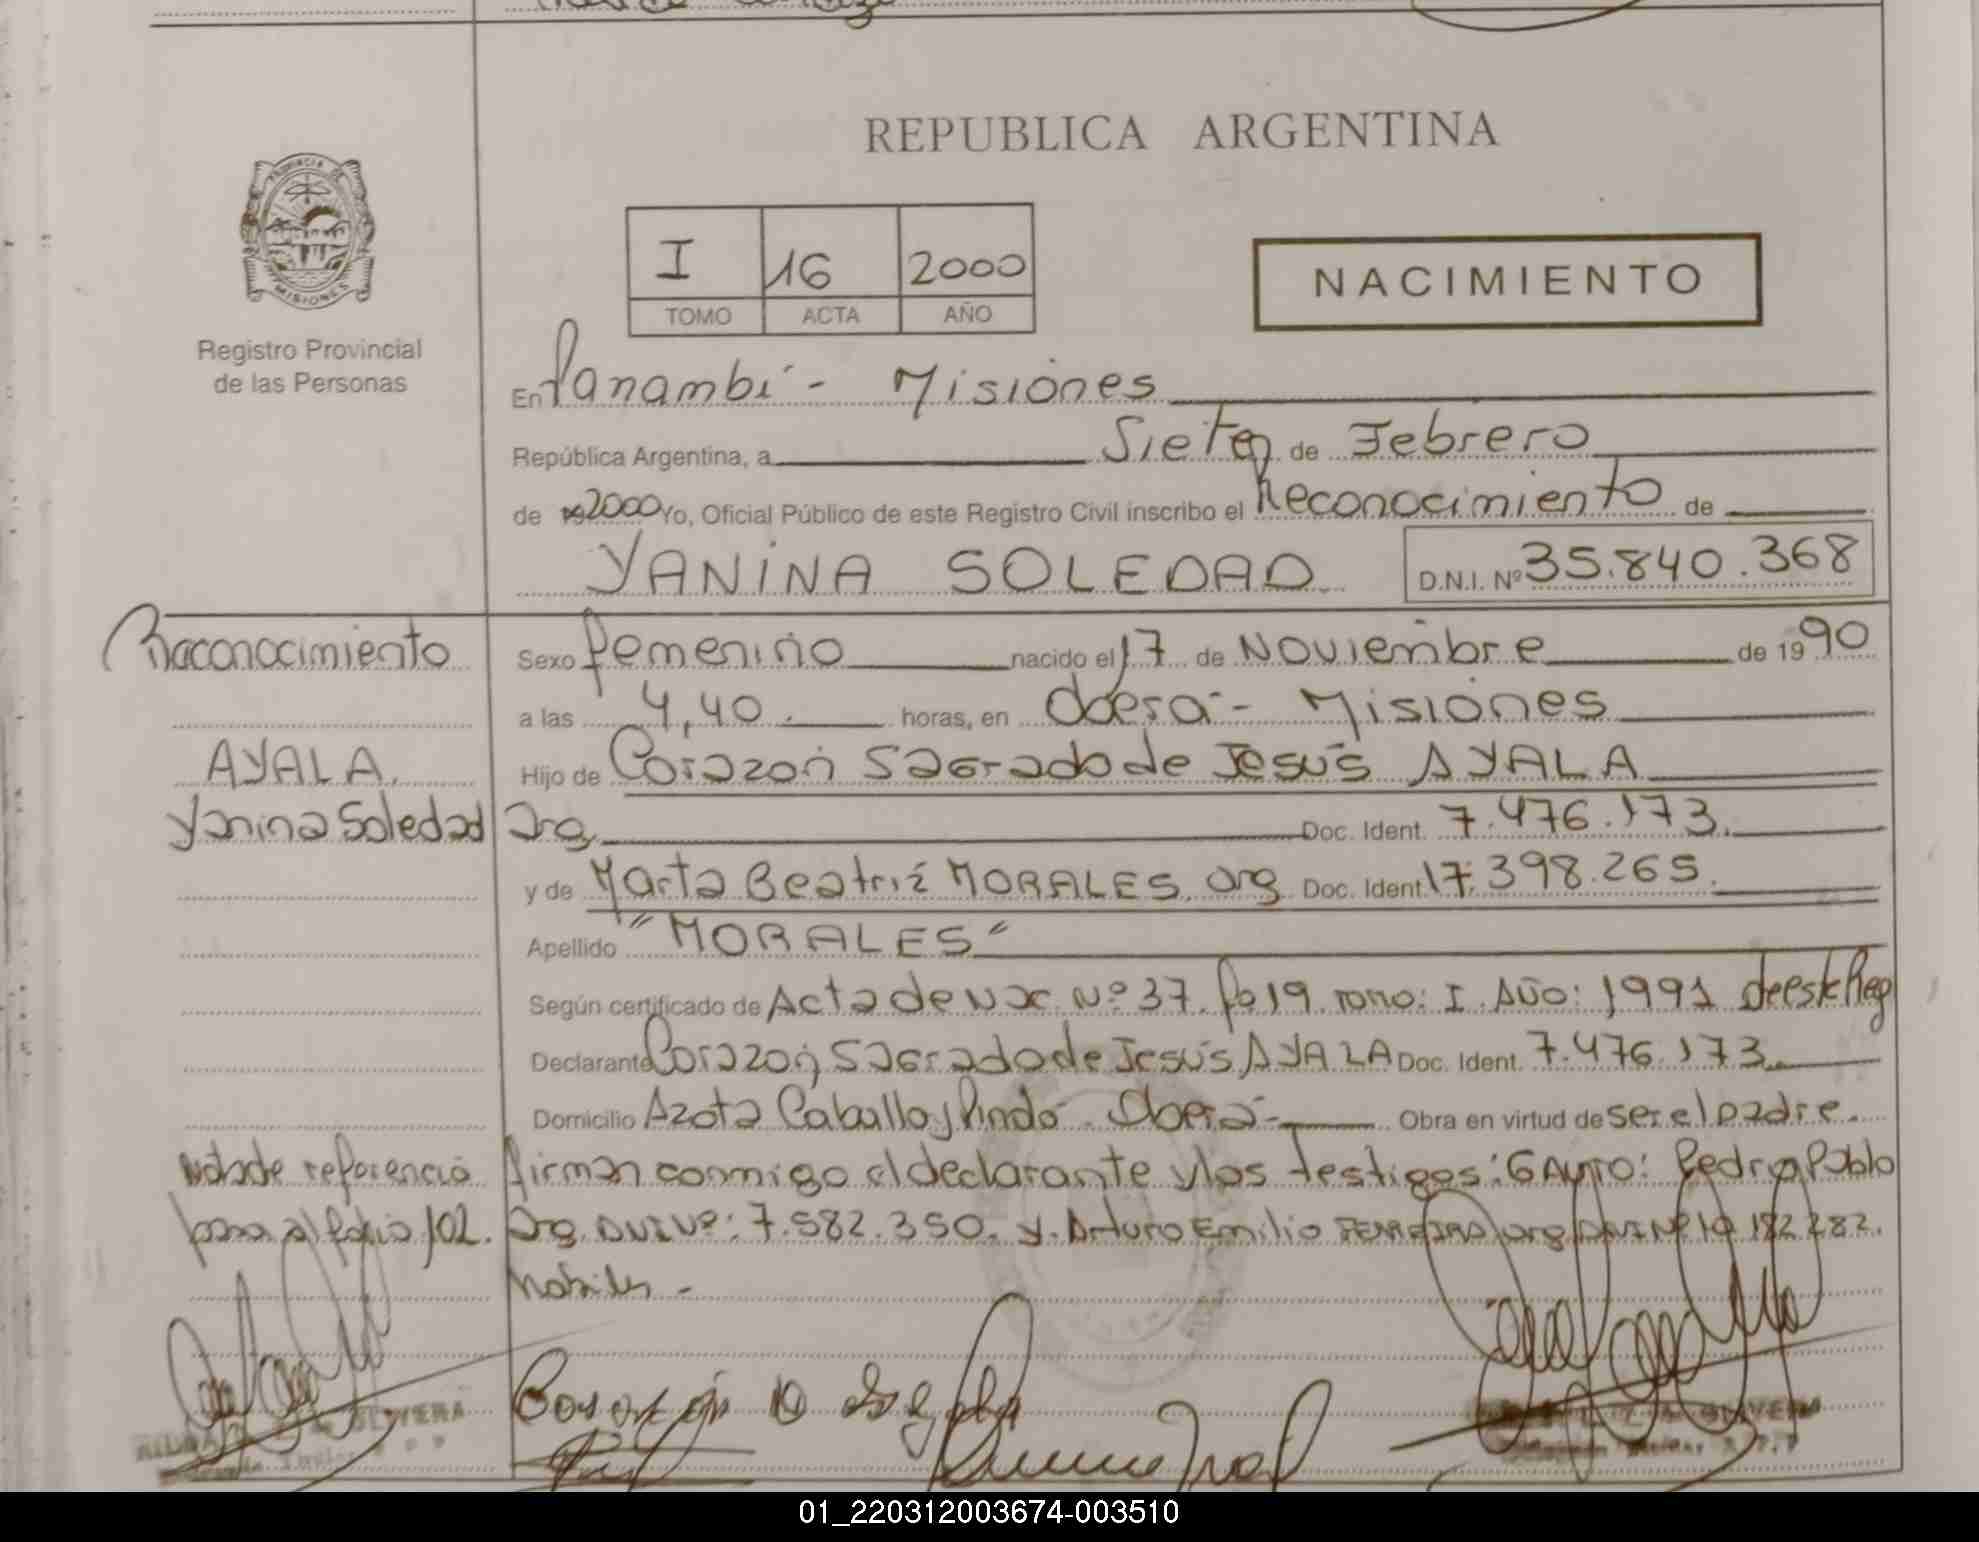 REPUBLICA ARGENTINA
PROVINCIA DE
MISIONES
Registro Provincial
de las Personas
I 16 2000
TOMO ACTA AÑO
NACIMIENTO
En Panambí - Misiones
República Argentina, a Siete de Febrero
de 2000 Yo, Oficial Público de este Registro Civil inscribo el Reconocimiento de
YANINA SOLEDAD D.N.I. Nº 35.840.368
Reconocimiento
AYALA,
Yanina Soledad
Sexo femenino nacido el 17 de Noviembre de 1990
a las 4,40. horas, en Oberá - Misiones
Hijo de Corazón Sagrado de Jesús AYALA
Arg. Doc. Ident. 7.476.173.
y de Marta Beatriz MORALES, arg. Doc. Ident. 17.398.265.
Apellido "MORALES"
Según certificado de Acta de Nac. Nº 37. Fo 19. Tomo: I. Año: 1991 de este Reg
Declarante Corazón Sagrado de Jesús AYALA Doc. Ident. 7.476.173.
Domicilio Azota Caballo y Pindó - Oberá - Obra en virtud de ser el padre.
Nota de referencia
para al folio 102.
firman conmigo el declarante y los testigos: Pedro Pablo
Arg. DNI Nº: 7.582.350. y Arturo Emilio FERREIRA, arg. DNI Nº 182.282.
hábiles -
OLIVERA
OLIVERA
01_220312003674-003510